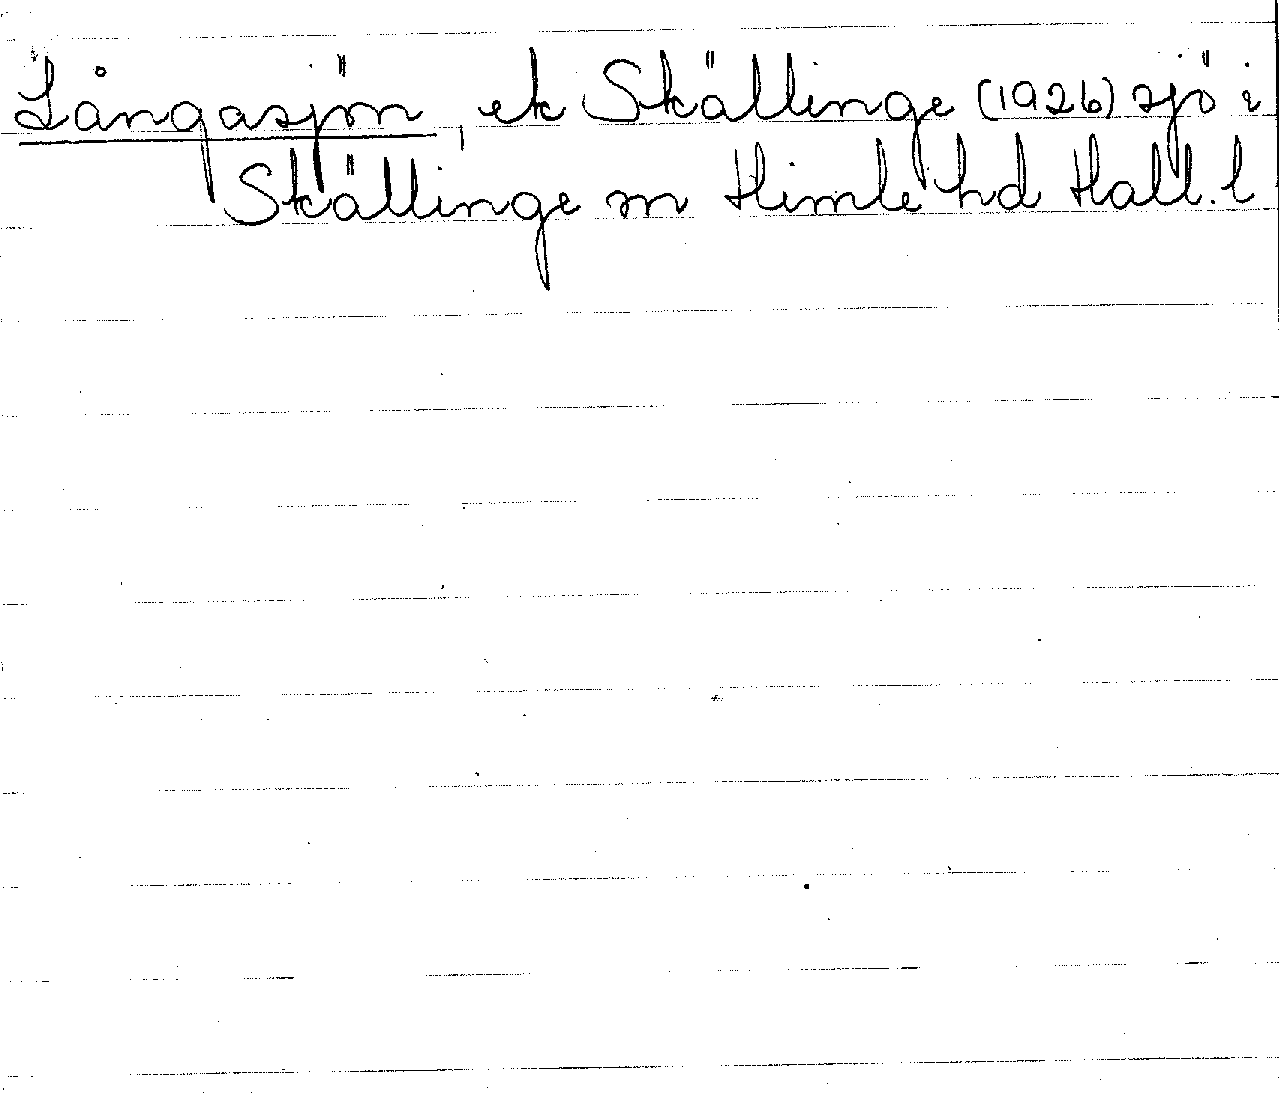 Långasjön, ek Skällinge (1926) sjö i
Skällinge sn Himle hd Hall. l